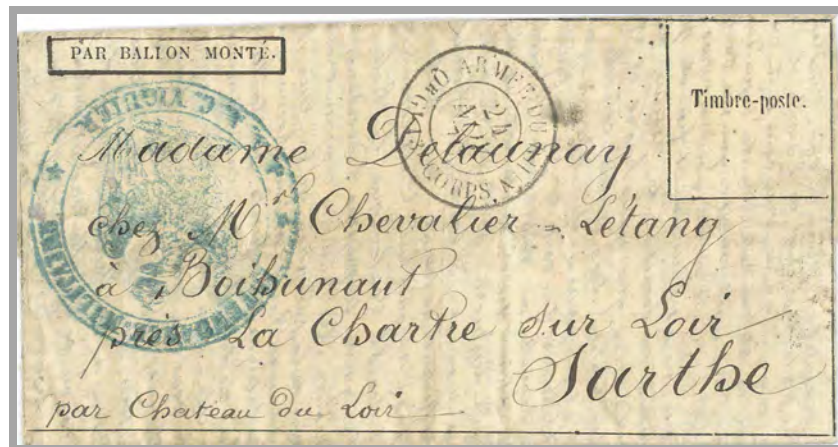 PAR BALLON MONTÉ.
Timbre-poste.
ARMÉE DU
24
CORPS. A
C. VIGUIER
Madame Delaunay
chez Mr Chevalier = Létang
à Boihunaut
près La Chartre sur Loir
Sarthe
par Chateau du Loir